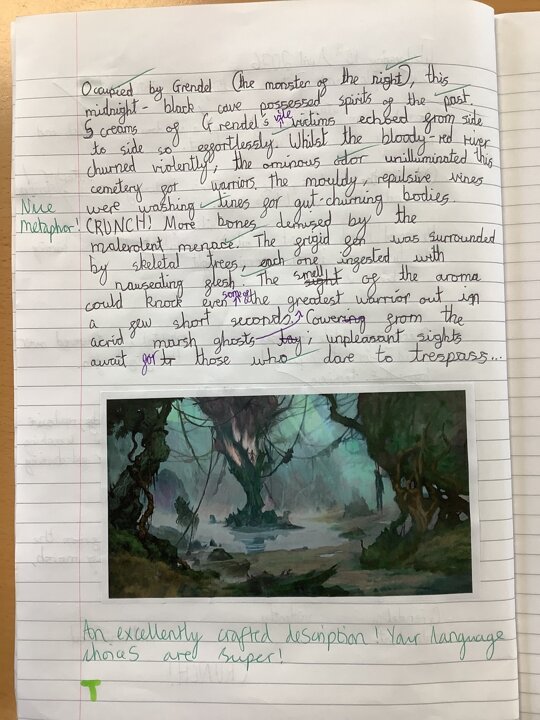 Occupied by Grendel (the monster of the night), this
midnight-black cave possessed spirits of the past.
Screams of Grendel's vile victims echoed from side
to side so effortlessly. Whilst the bloody-red river
churned violently, the ominous odor unilluminated this
cemetery for warriors. The mouldy, repulsive vines
were washing lines for gut-churning bodies.
Nice
metaphor!
CRUNCH! More bones demised by the
malevolent menace. The frigid fen was surrounded
by skeletal trees, each one ingested with
nauseating flesh. The smell sight of the aroma
could knock even some of the greatest warrior out in
a few short seconds. Cowering from the
acrid marsh ghosts, unpleasant sights
await for to those who dare to trespass...
An excellently crafted description! Your language
choices are super!
T